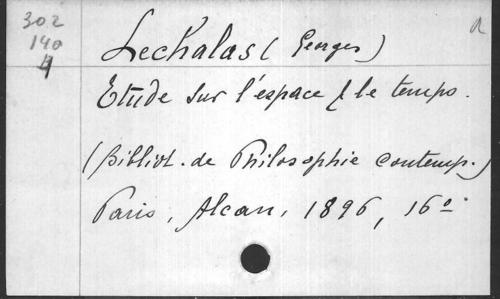 302
140
4
Lechalas (Georges)
a
Etude sur l'espace & le temps.
(Bibliot. de Philosophie contemp.)
Paris, Alcan, 1896, 16º.